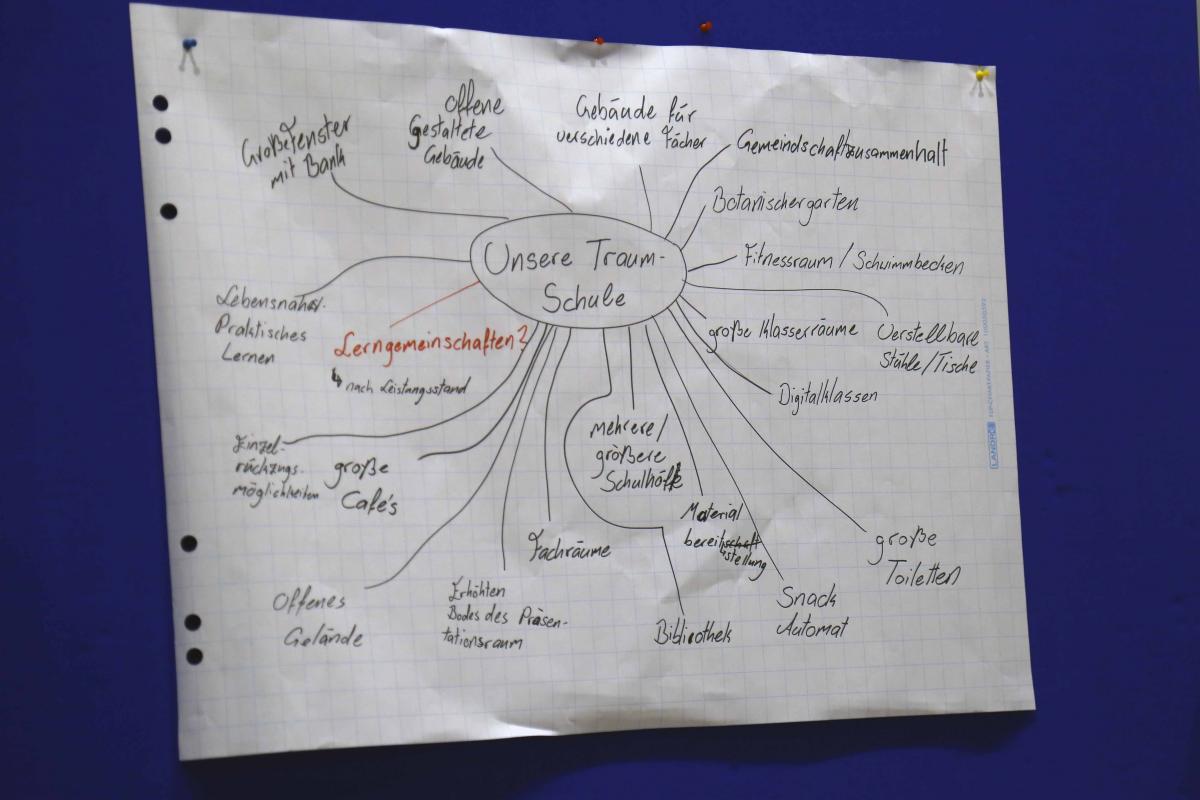 Große Fenster
mit Bank
Offene
Gestaltete
Gebäude
Gebäude für
verschiedene Fächer
Gemeindschaftszusammenhalt
Botanischergarten
Fitnessraum / Schwimmbecken
Unsere Traum-
Schule
Lebensnahes.
Praktisches
Lernen
Lerngemeinschaften?
↳ nach Leistungsstand
große Klasserräume
Verstellbare
Stühle/Tische
Digitalklassen
Einzel-
rückzugs-
möglichkeiten
große
Café's
Mehrere/
größere
Schulhöfe
Material
bereitschaft
stellung
Fachräume
große
Toiletten
Offenes
Gelände
Erhöhten
Bodes des Präsen-
tationsraum
Bibliothek
Snack
Automat
LANDRÉ